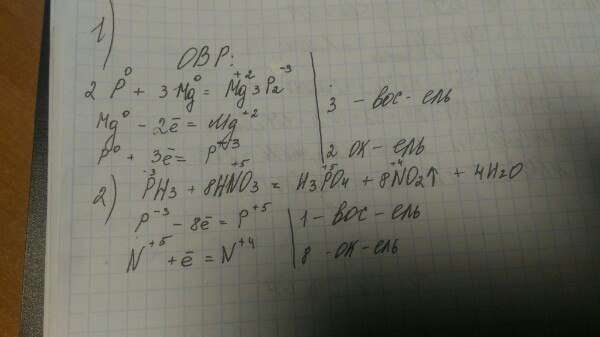 1) ОВР:
2 P⁰ + 3 Mg⁰ = Mg⁺²₃P₂⁻³
Mg⁰ - 2ē = Mg⁺² | 3 - вос-ель
P⁰ + 3ē = P⁺³ | 2 ок-ель
2) P⁻³H₃ + 8HN⁺⁵O₃ = H₃P⁺⁵O₄ + 8N⁺⁴O₂↑ + 4H₂O
P⁻³ - 8ē = P⁺⁵ | 1 - вос-ель
N⁺⁵ + ē = N⁺⁴ | 8 - ок-ель